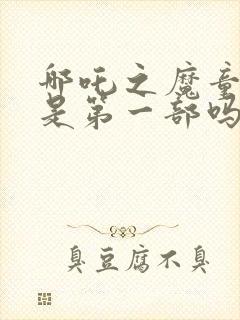 哪吒之魔童
是第一部吗
臭豆腐不臭